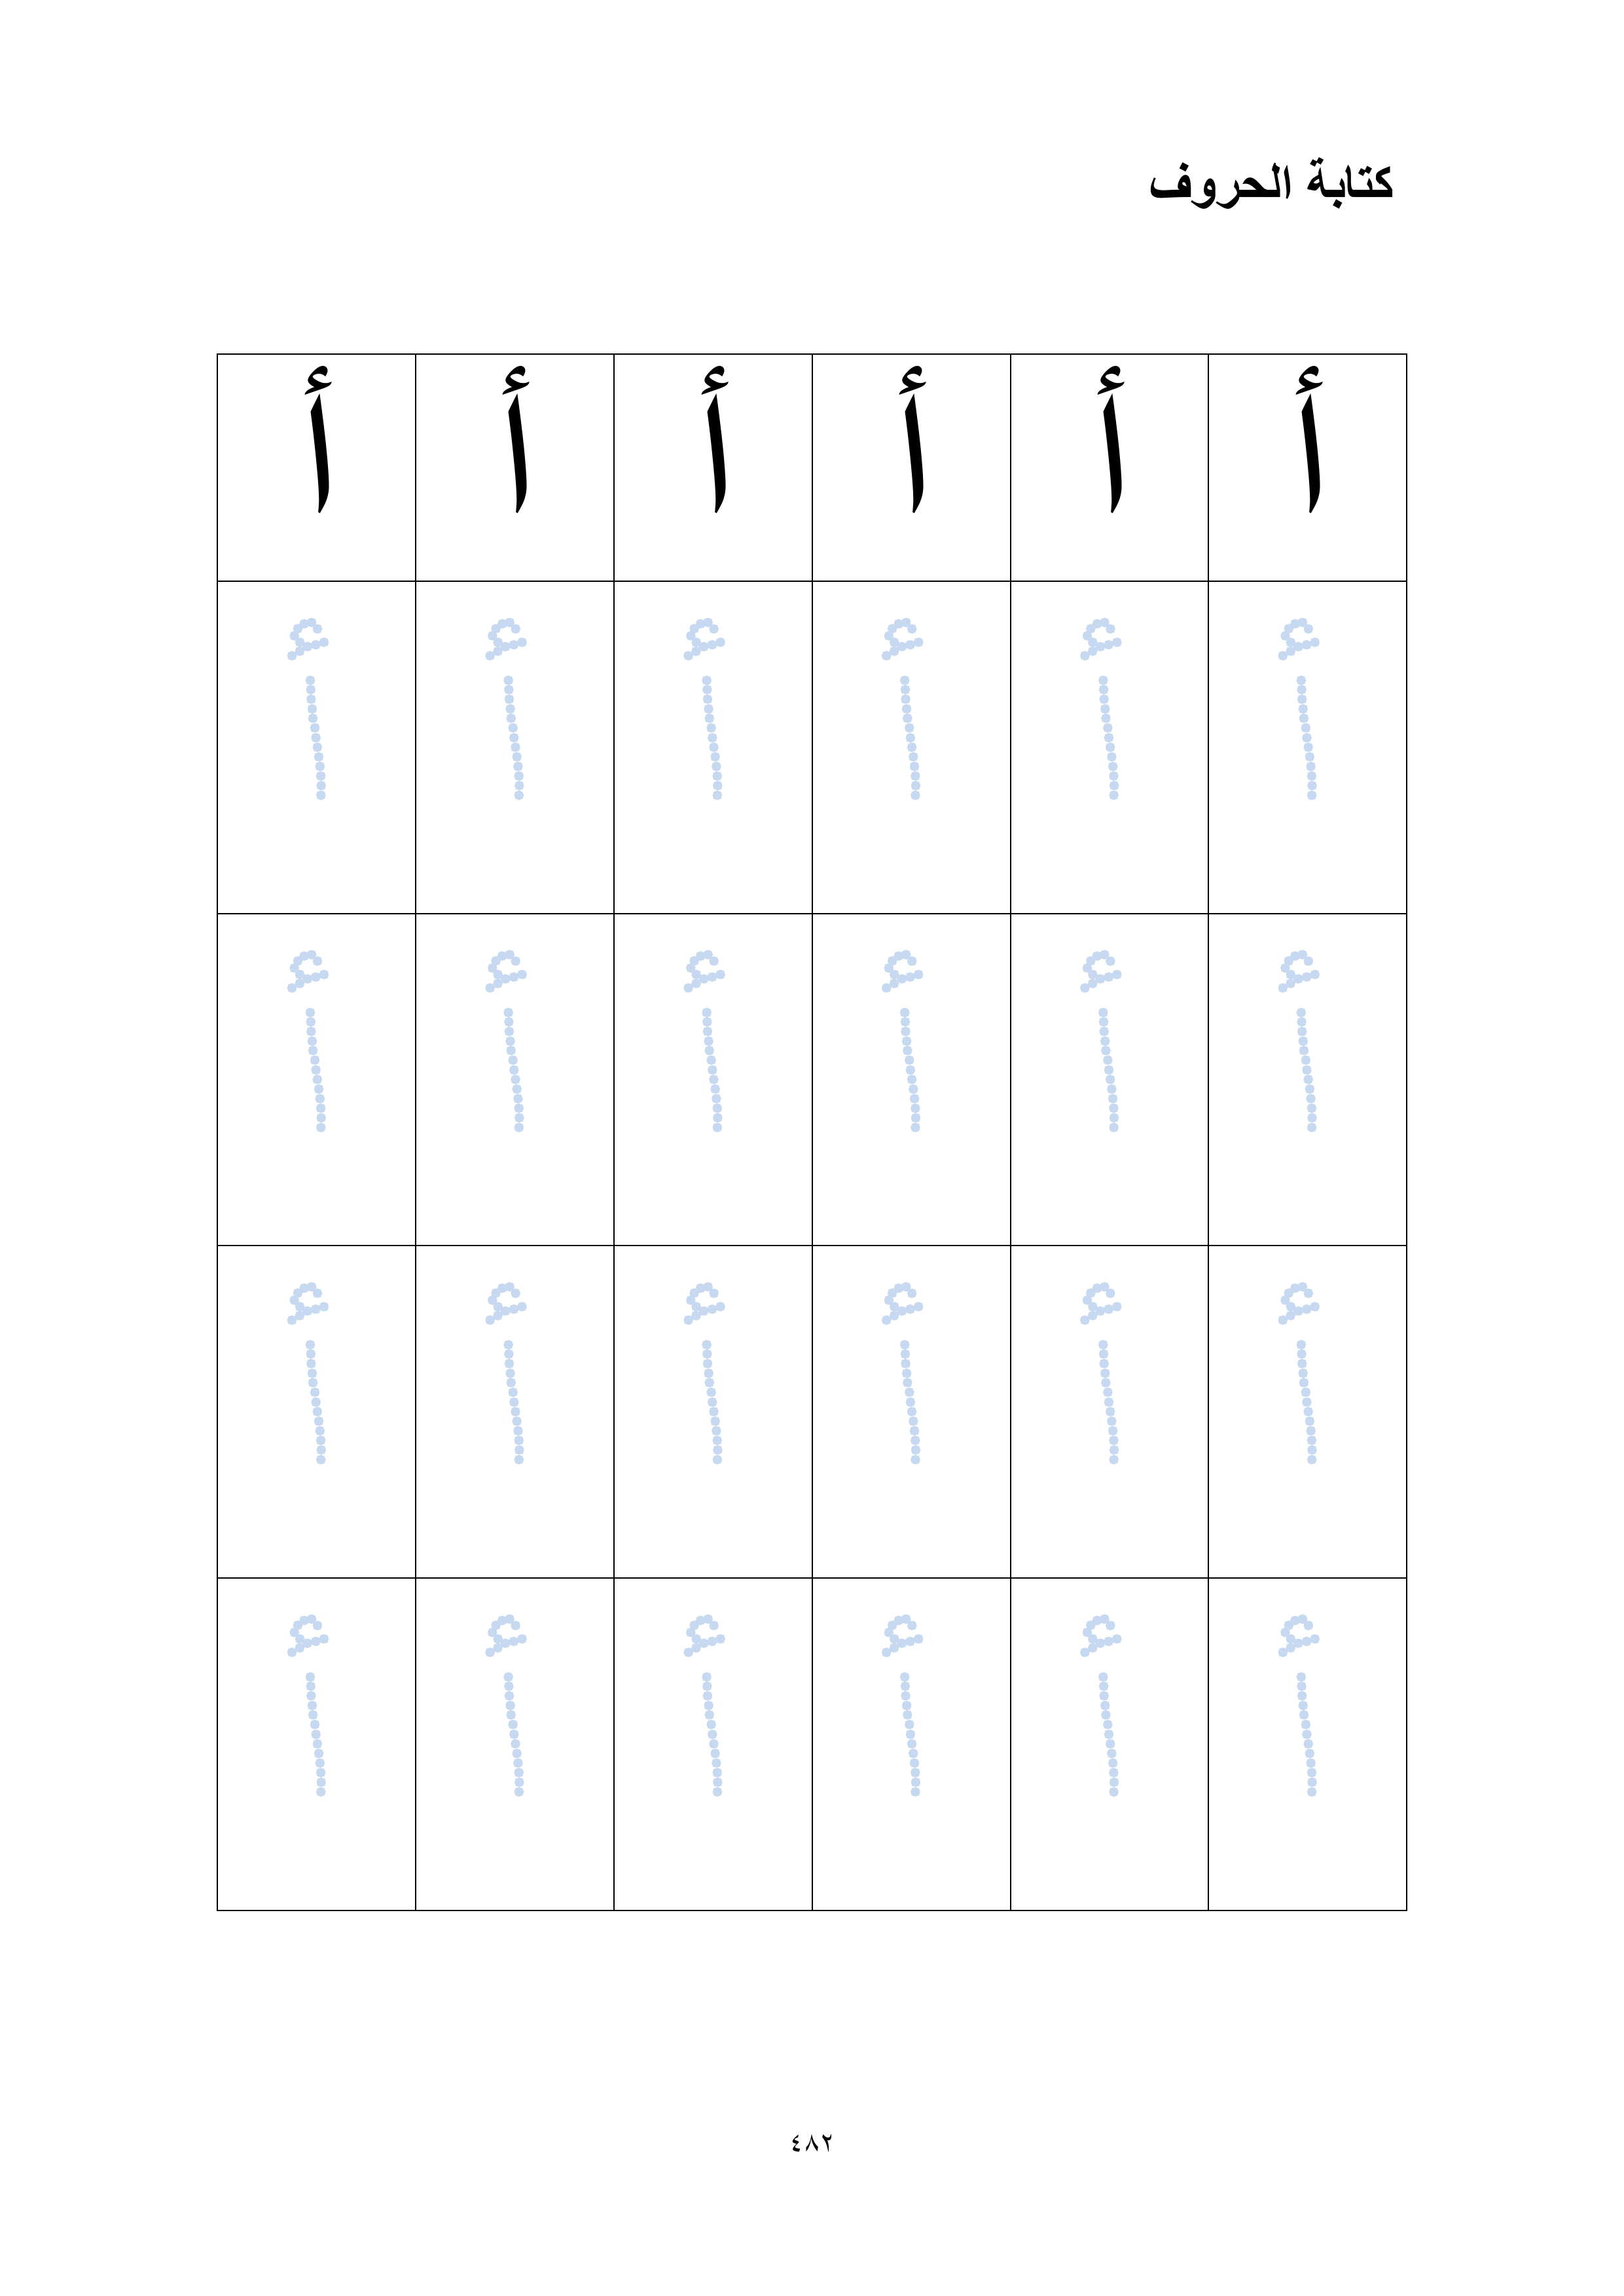 كتابة الحروف
أ أ أ أ أ أ
أ أ أ أ أ أ
أ أ أ أ أ أ
أ أ أ أ أ أ
أ أ أ أ أ أ
٤٨٢